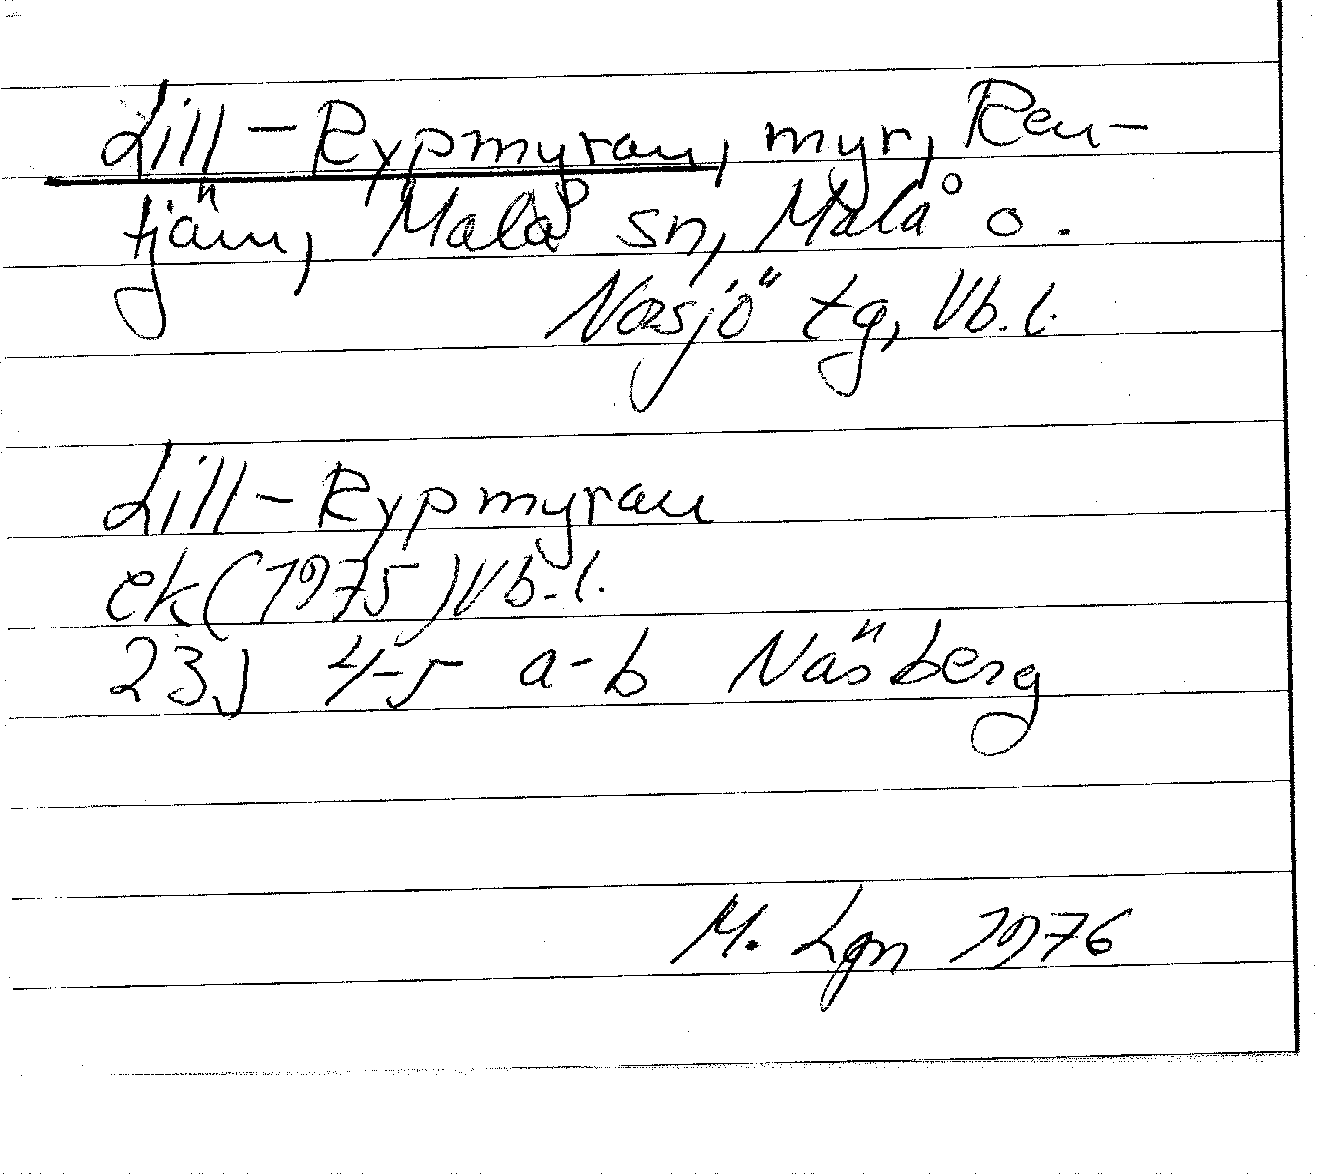 Lill-Rypmyran, myr, Ren-
tjärn, Malå sn, Malå o.
Norsjö tg, Vb.l.
Lill-Rypmyran
ek(1975)Vb.l.
23J 4-5 a-b Näsberg
M. Lgn 1976